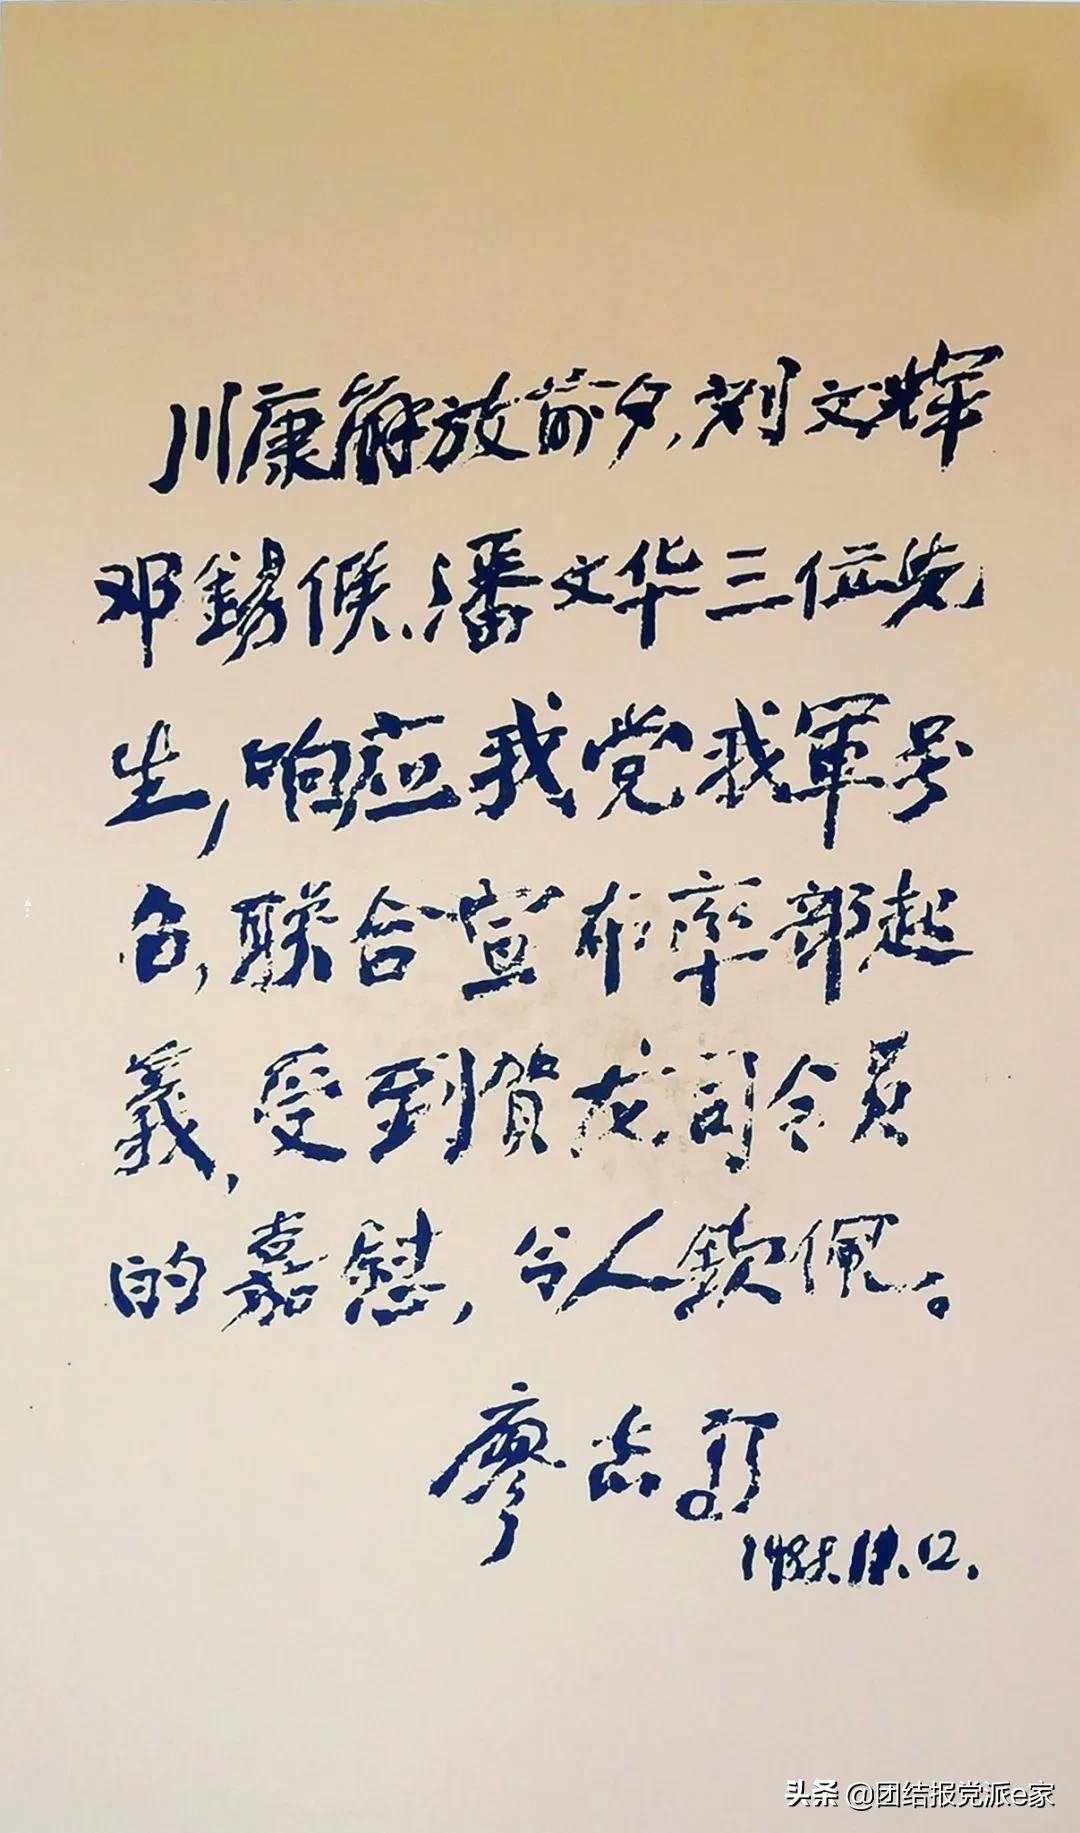 川康解放前夕、刘文辉
邓錫侯、潘文华三位先
生,响应我党我軍号
召,联合宣布率部起
義,受到賀龙司令员
的嘉慰,令人欽佩。
廖志高
1985.11.12.
头条 @团结报党派e家